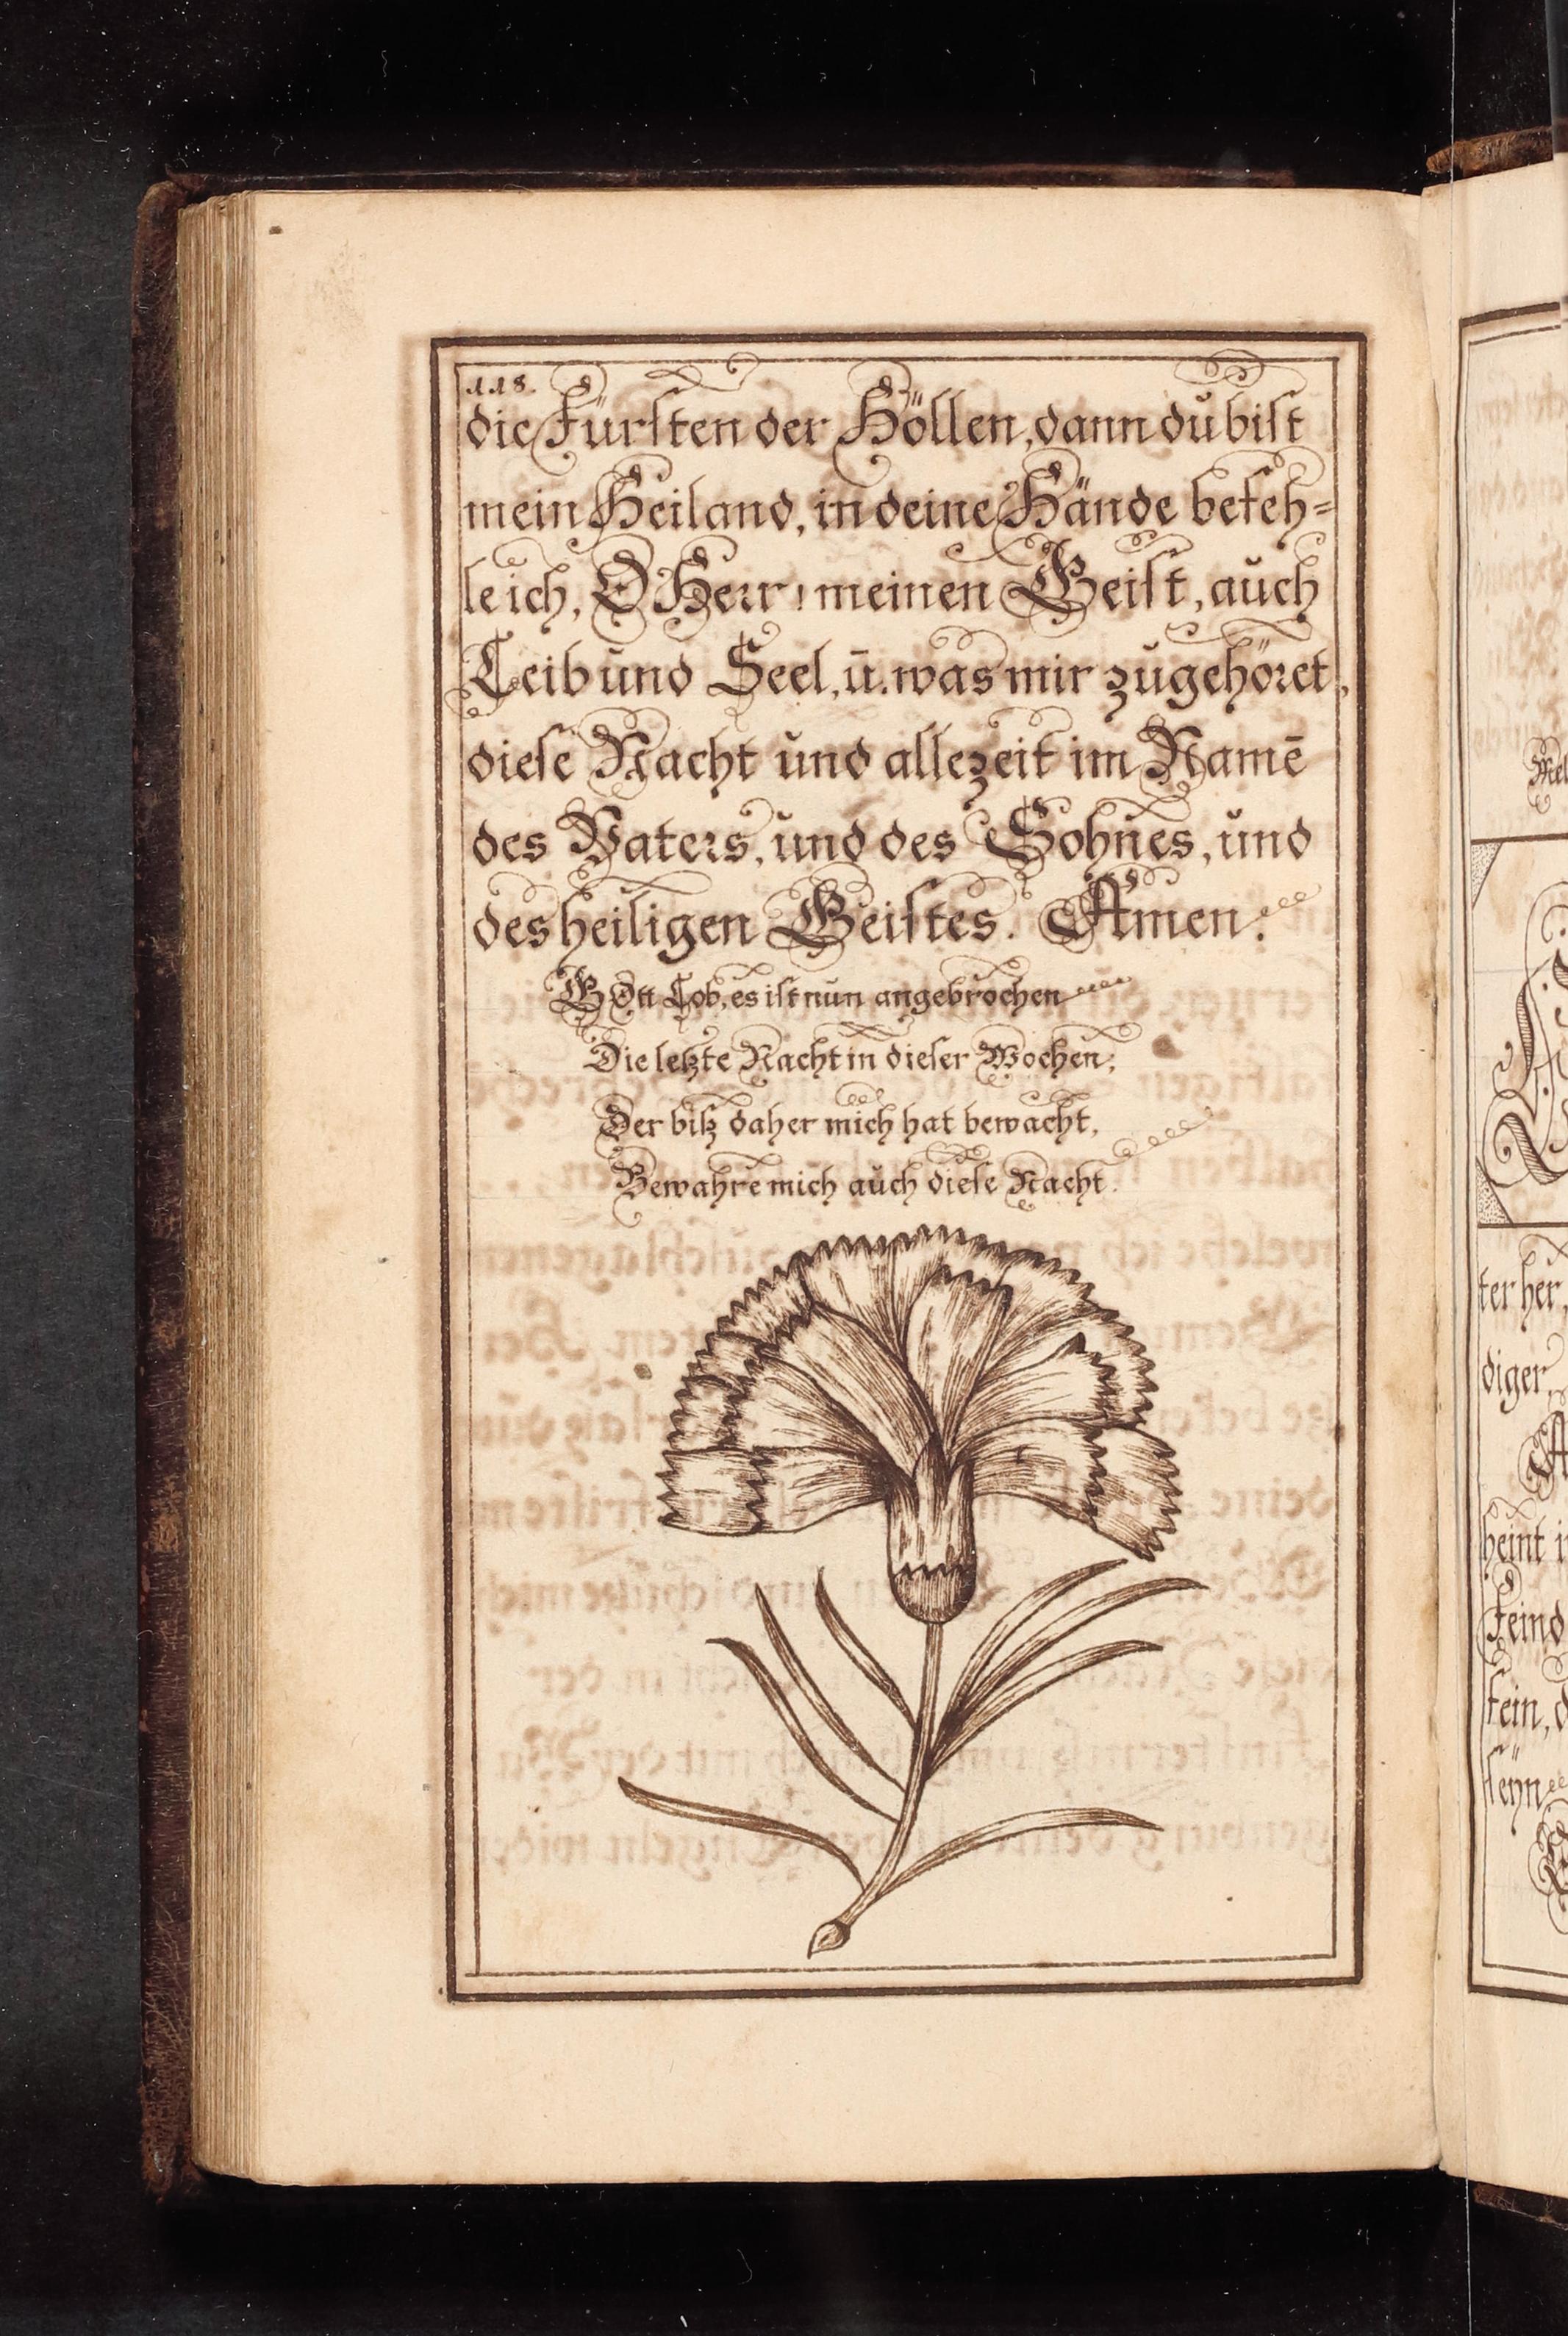 118.
die Fürsten der Höllen, dann du bist
mein Heiland, in deine Hände befeh=
le ich, O Herr! meinen Geist, auch
Leib und Seel, ū. was mir zugehöret,
diese Nacht und allezeit im Namē
des Vaters, und des Sohnes, und
des heiligen Geistes. Amen.
GOtt Lob, es ist nun angebrochen
Die letzte Nacht in dieser Wochen;
Der biß daher mich hat bewacht,
Bewahre mich auch diese Nacht.
ter her,
diger,
heint
Feind
sein,
seyn